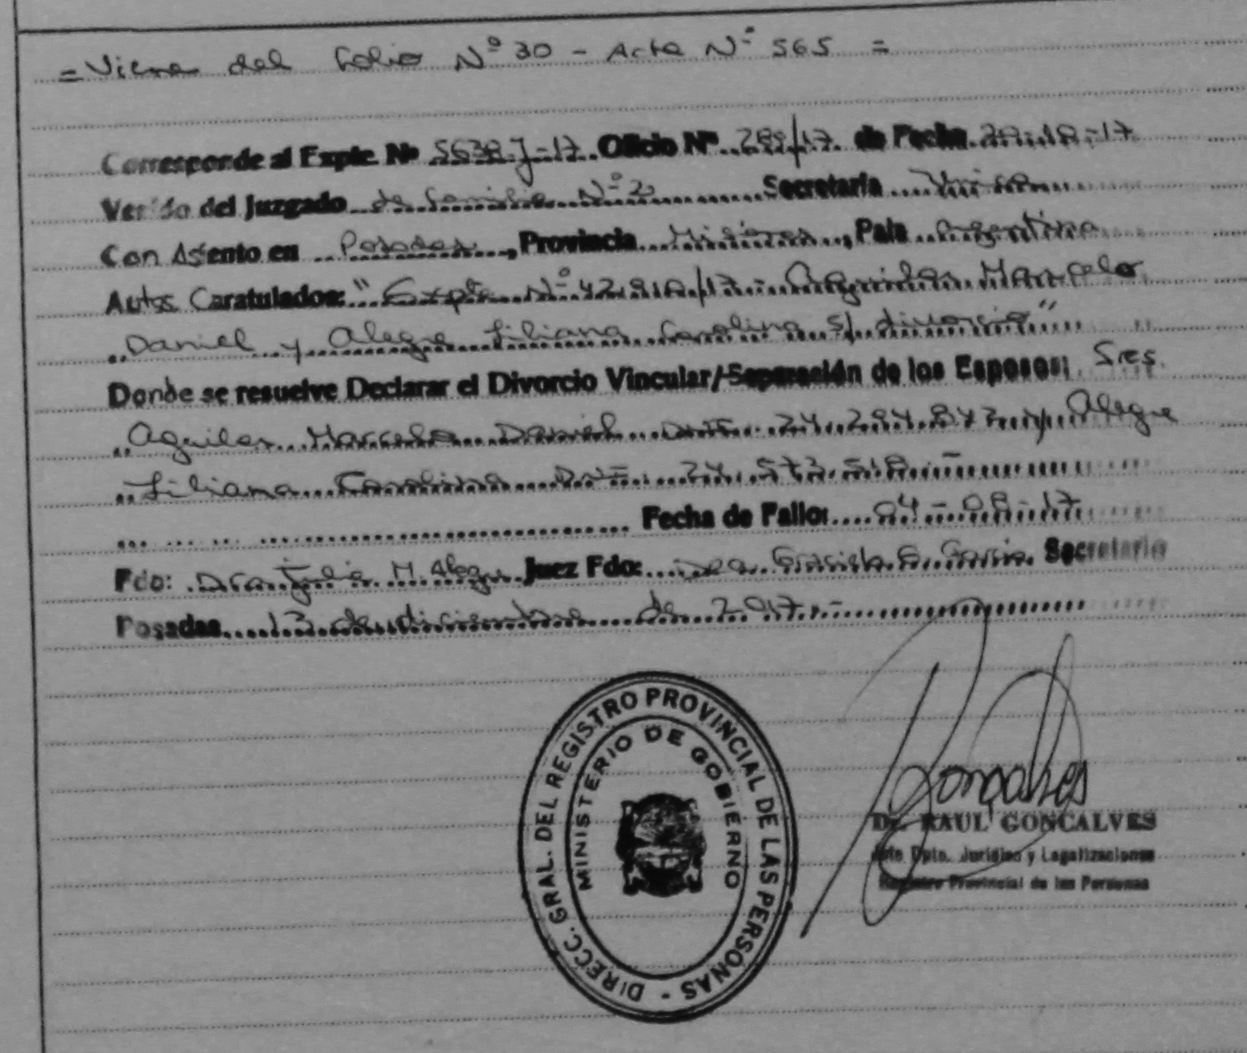 = Viene del Folio Nº 30 - Acta Nº 565 =
Corresponde al Expte. Nº 5638 J-17 Oficio Nº 289/17 de Fecha
Venido del Juzgado de Familia Nº 2 Secretaría Unica
Con Asiento en Posadas, Provincia Misiones, País Argentina
Autos Caratulados: "Expte Nº 42.910/17 - Aguilar Marcelo
Daniel y Alegre Liliana Carolina s/ divorcio"
Donde se resuelve Declarar el Divorcio Vincular/Separación de los Esposos: Sres.
Aguilar Marcelo Daniel DNI. 24.294.842 y Alegre
Liliana Carolina DNI. 24.573.518.-
Fecha de Fallo: 04-09-17
Fdo: Dra Julia M. Alegre Juez Fdo: Dra. Graciela E. Garcia Secretario
Posadas, 13 de diciembre de 2.017.-
DIRECC. GRAL. DEL REGISTRO PROVINCIAL DE LAS PERSONAS -
MINISTERIO DE GOBIERNO
Goncalves
Dr. RAUL GONCALVES
Jefe Dpto. Jurídico y Legalizaciones
Registro Provincial de las Personas